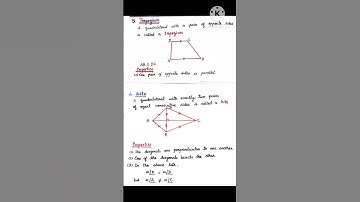 5. Trapezium
A quadrilateral with a pair of opposite sides
is called a Trapezium
D
C
A
B
AB || DC
Properties
(1) One pair of opposite sides is parallel.
6. Kite
A quadrilateral with exactly two pairs
of equal consecutive sides is called a kite
D
A
C
B
Properties
(1) The diagonals are perpendicular to one another.
(2) One of the diagonals bisects the other.
(3) In the above kite,
m∠B = m∠D
but m∠A ≠ m∠C